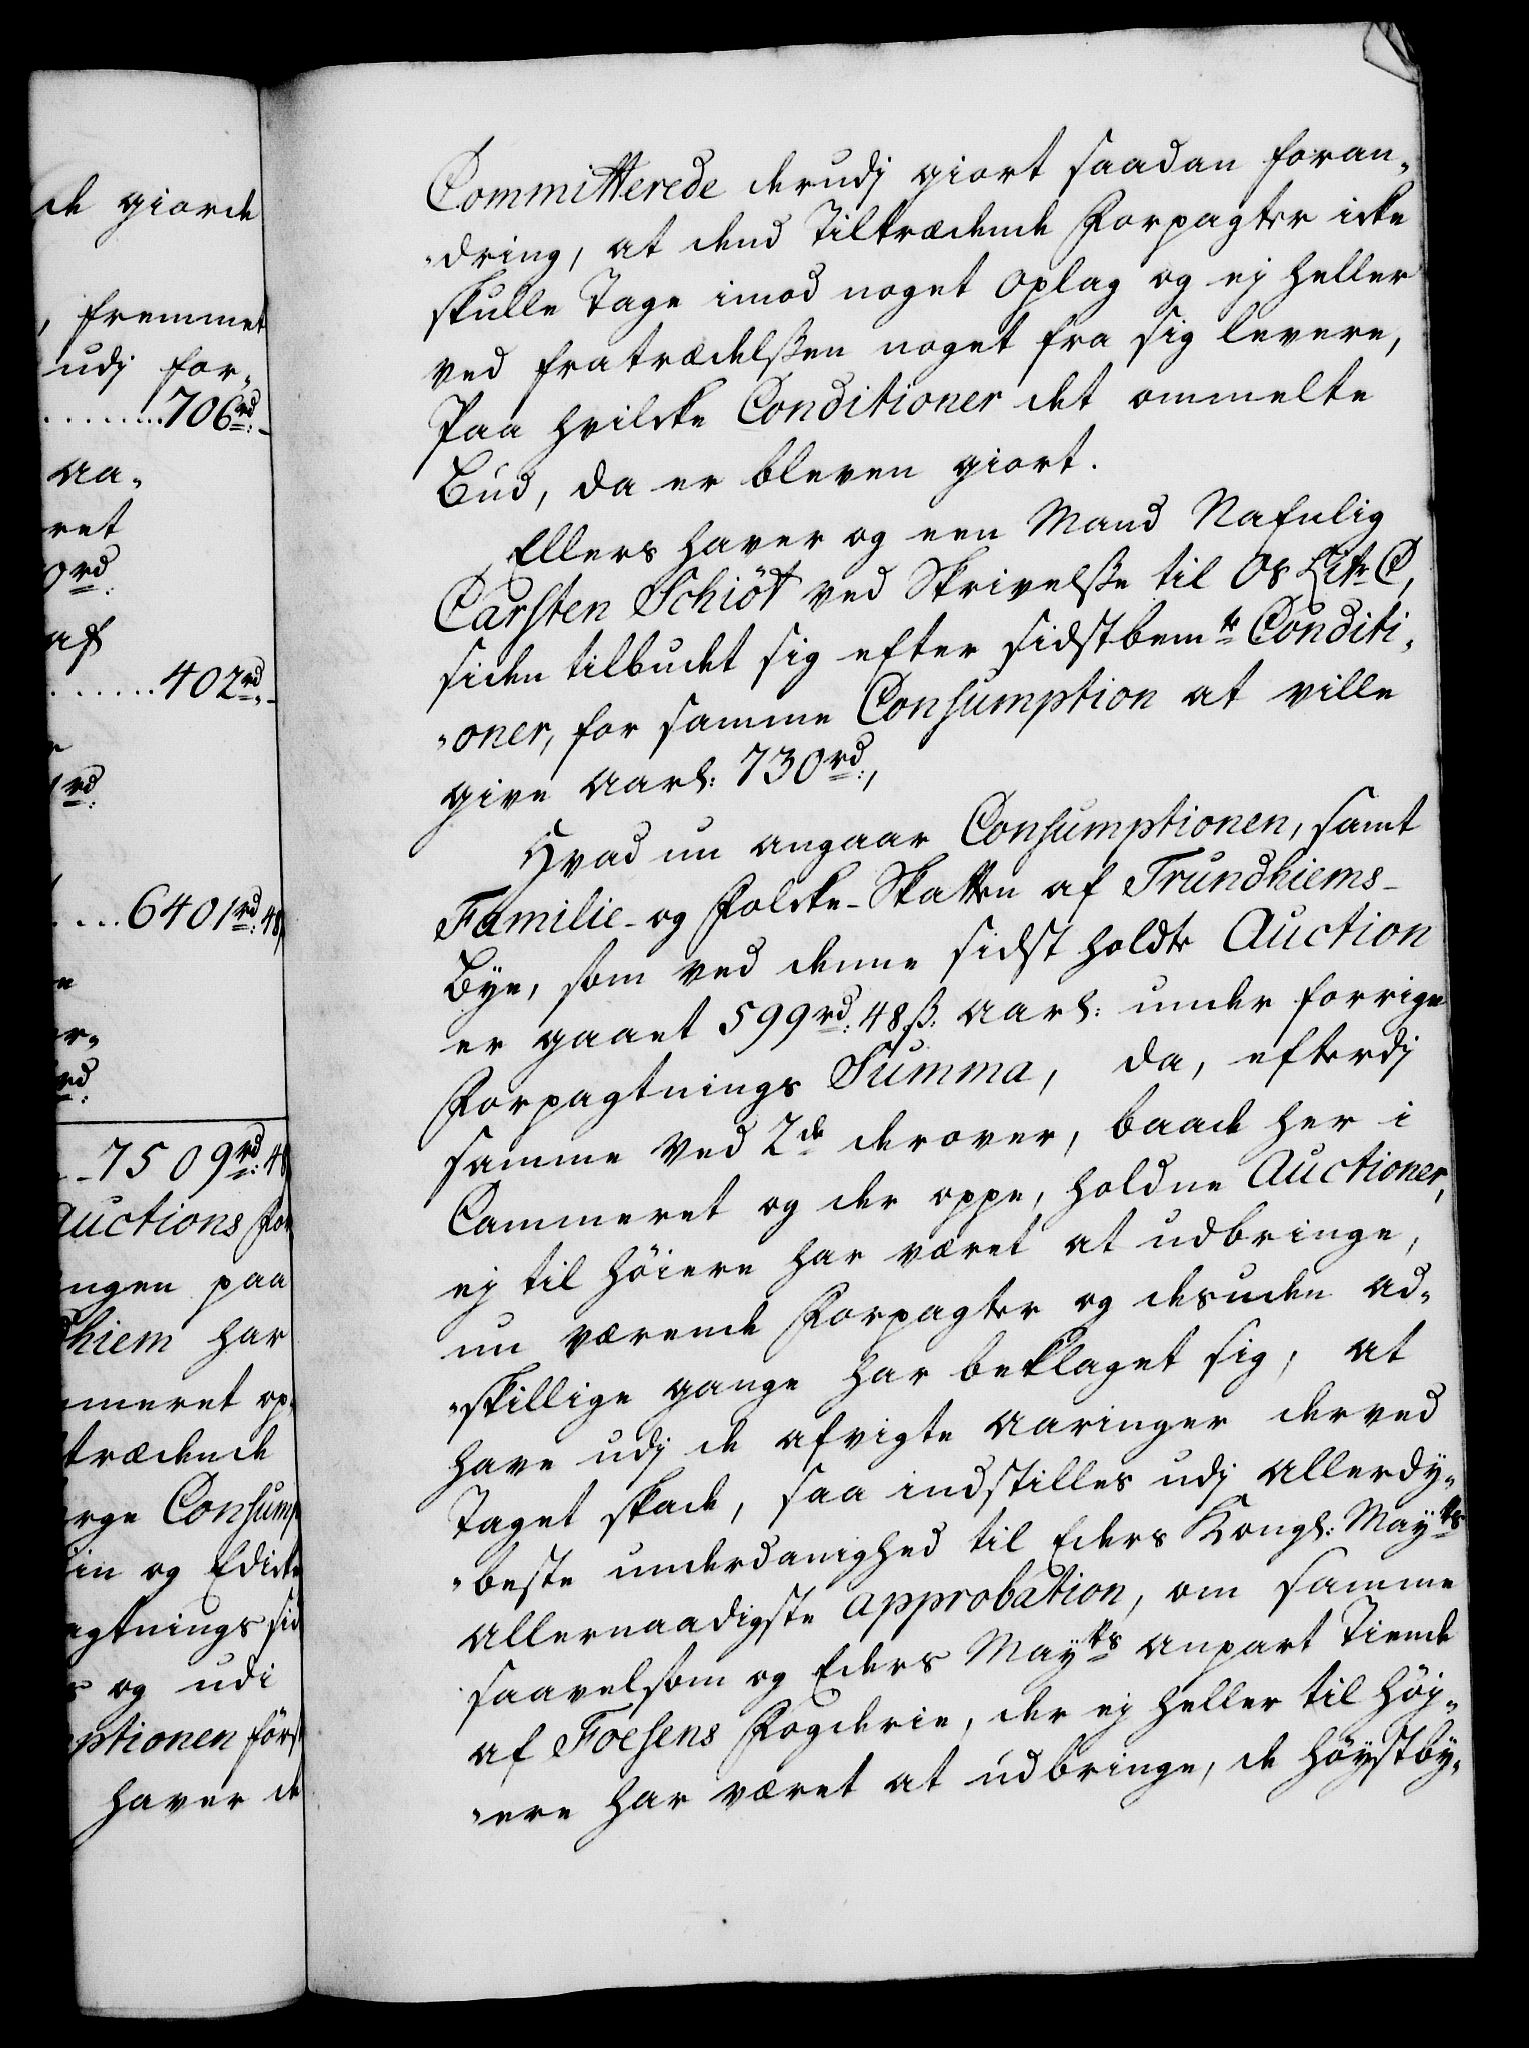 de giorde
, fremmet
udj for„
........706rd:-
aa„
ret
0rd:
af
.......402rd:-
1rd:
....6401rd: 48
7509rd: 48
Auctions for
ngen paa
hiem har
meret op„
trædende
rge Consump
in og Edicte
agtnings sid
og udi
ptionen först
haver de
Committerede derudj giort saadan foran„
„dring, at dend Tiltrædende Forpagter icke
skulle Tage imod noget Oplag og ej heller
ved fratrædelßen noget fra sig levere,
Paa hvilcke Conditioner det ommelte
Bud, da er bleven giort.
Ellers haver og een Mand Nafnlig
Carsten Schiöt ved Skrivelße til Os Litr C,
siden tilbudet sig efter sidstbemte Conditi„
„oner, for samme Consumption at ville
give aarl: 730rd:,
Hvad nu angaar Consumptionen, samt
Familie- og Folcke-Skatten af Trundhiems-
Bye, som ved denne sidst holdte Auction
er gaaet 599rd: 48ß: aarl: under forrige
Forpagtnings Summa, da, efterdj
samme ved 2de derover, baade her i
Cammeret og der oppe, holdne Auctioner,
ej til höiere har været at udbringe,
nu værende Forpagter og desuden ad„
„skillige gange har beklaget sig, at
have udj de afvigte aaringer derved
Taget skade, saa indstilles udj allerdy„
„beste underdanighed til Eders Kongl: Maytts
allernaadigste approbation, om samme
saavelsom og Eders Maytts anpart Tiende
af Foesens Fogderie, der ej heller til höj„
„ere har været at udbringe, de höystby„